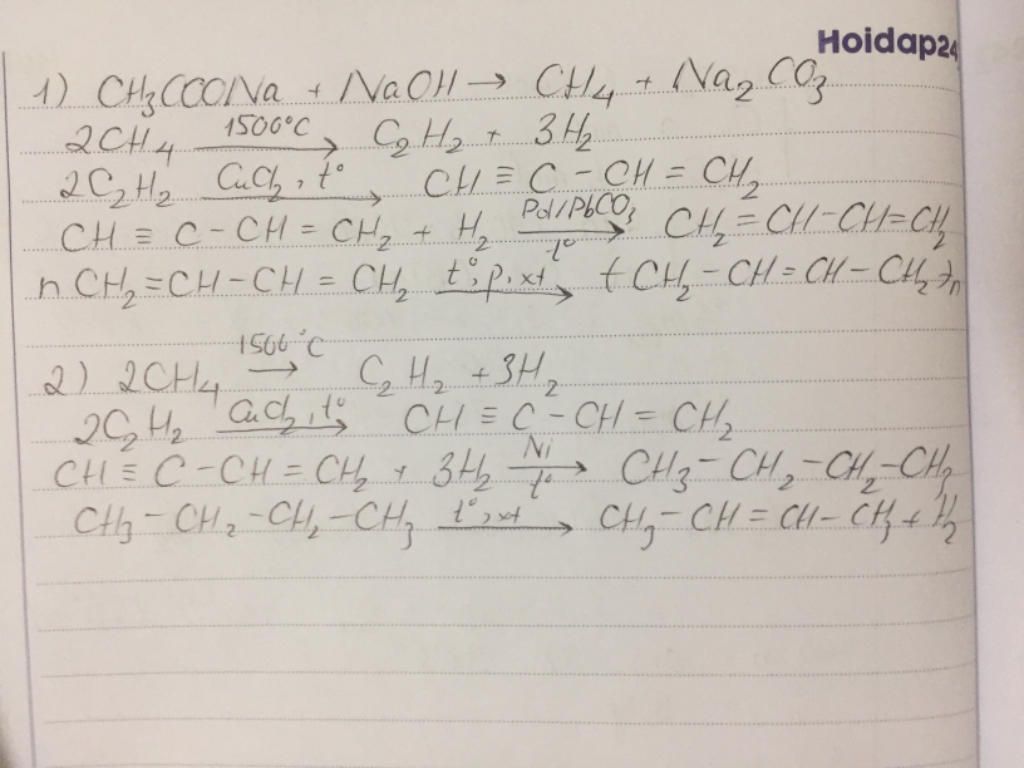 Hoidap24
1) CH₃COONa + NaOH → CH₄ + Na₂CO₃
2CH₄ 1500°C → C₂H₂ + 3H₂
2C₂H₂ CuCl₂, t° → CH ≡ C - CH = CH₂
CH ≡ C - CH = CH₂ + H₂ Pd/PbCO₃ → t° CH₂ = CH - CH = CH₂
n CH₂ = CH - CH = CH₂ t°, p, xt → (CH₂ - CH = CH - CH₂)n
2) 2CH₄ 1500°C → C₂H₂ + 3H₂
2C₂H₂ CuCl₂, t° → CH ≡ C - CH = CH₂
CH ≡ C - CH = CH₂ + 3H₂ Ni → t° CH₃ - CH₂ - CH₂ - CH₃
CH₃ - CH₂ - CH₂ - CH₃ t°, xt → CH₃ - CH = CH - CH₃ + H₂